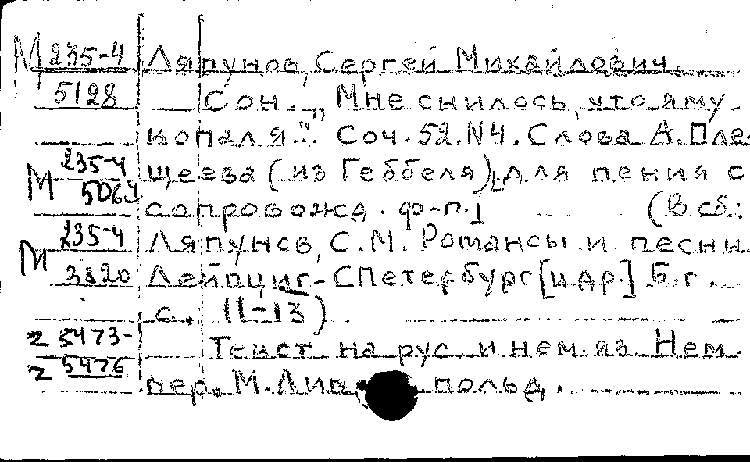 М 235-4 Ляпунов, Сергей Михайлович.
5128 Сон. „Мне снилось, что яму
копал я.“ Соч. 52. N4. Слова А. Пле-
М 235-4 щеева (из Геббеля) для пения с
5064 сопровожд. ф-п. (В сб.:
М 235-4 Ляпунов, С. М. Романсы и песни
3820 Лейпциг-СПетербург [и др.] Б. г.
с. 11-13)
z 5473- Текст на рус. и нем. яз. Нем.
z 5476 пер. М. польд.